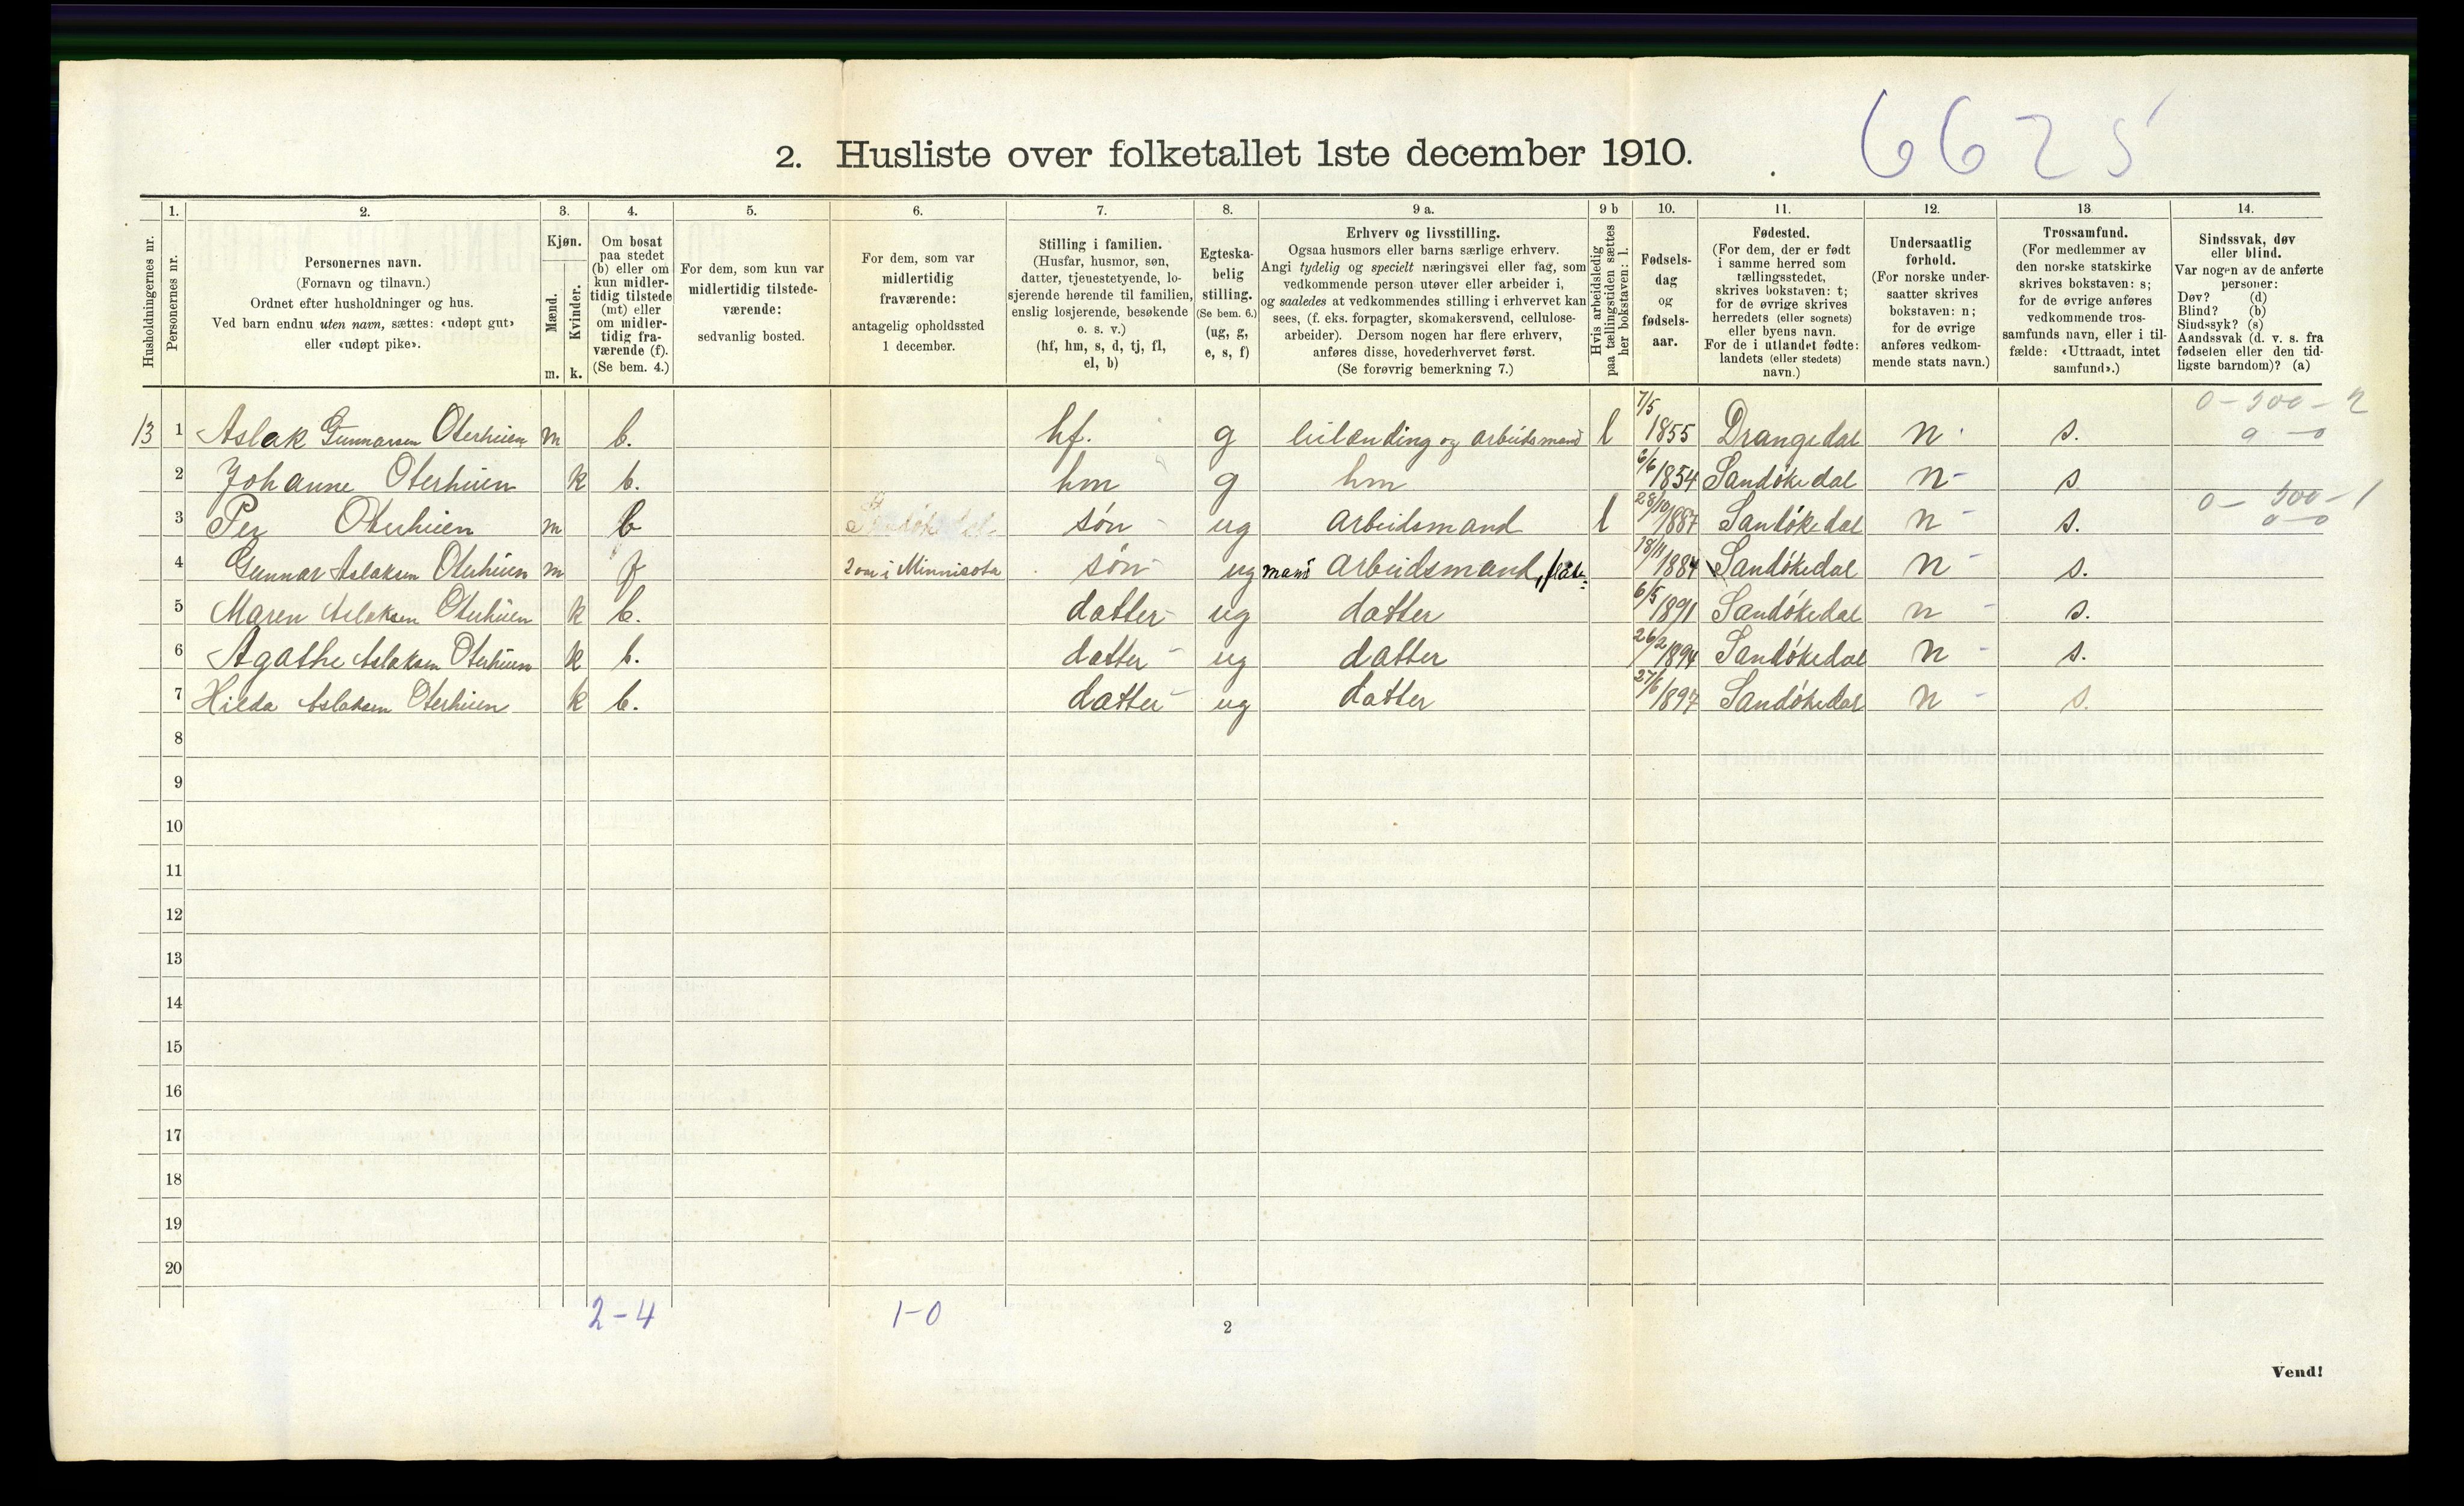 6625
2. Husliste over folketallet 1ste december 1910.
Husholdningernes nr.
1. Personernes nr.
2. Personernes navn.
(Fornavn og tilnavn.)
Ordnet efter husholdninger og hus.
Ved barn endnu uten navn, sættes: «udøpt gut»
eller «udøpt pike».
3. Kjøn.
Mænd. Kvinder.
m. k.
4. Om bosat
paa stedet
(b) eller om
kun midler-
tidig tilstede
(mt) eller
om midler-
tidig fra-
værende (f).
(Se bem. 4.)
5. For dem, som kun var
midlertidig tilstede-
værende:
sedvanlig bosted.
6. For dem, som var
midlertidig
fraværende:
antagelig opholdssted
1 december.
7. Stilling i familien.
(Husfar, husmor, søn,
datter, tjenestetyende, lo-
sjerende hørende til familien,
enslig losjerende, besøkende
o. s. v.)
(hf, hm, s, d, tj, fl,
el, b)
8. Egteska-
belig
stilling.
(Se bem. 6.)
(ug, g,
e, s, f)
9 a. Erhverv og livsstilling.
Ogsaa husmors eller barns særlige erhverv.
Angi tydelig og specielt næringsvei eller fag, som
vedkommende person utøver eller arbeider i,
og saaledes at vedkommendes stilling i erhvervet kan
sees, (f. eks. forpagter, skomakersvend, cellulose-
arbeider). Dersom nogen har flere erhverv,
anføres disse, hovederhvervet først.
(Se forøvrig bemerkning 7.)
9 b Hvis arbeidsledig
paa tællingstiden sættes
her bokstaven: l.
10. Fødsels-
dag
og
fødsels-
aar.
11. Fødested.
(For dem, der er født
i samme herred som
tællingsstedet,
skrives bokstaven: t;
for de øvrige skrives
herredets (eller sognets)
eller byens navn.
For de i utlandet fødte:
landets (eller stedets)
navn.)
12. Undersaatlig
forhold.
(For norske under-
saatter skrives
bokstaven: n;
for de øvrige
anføres vedkom-
mende stats navn.)
13 Trossamfund.
(For medlemmer av
den norske statskirke
skrives bokstaven: s;
for de øvrige anføres
vedkommende tros-
samfunds navn, eller i til-
fælde: «Uttraadt, intet
samfund».)
14. Sindssvak, døv
eller blind.
Var nogen av de anførte
personer:
Døv? (d)
Blind? (b)
Sindssyk? (s)
Aandssvak (d. v. s. fra
fødselen eller den tid-
ligste barndom)? (a)
0-500-2
13 1 Aslak Gunnarsen Oterhuien m b. hf. g leilænding og arbeidsmand l 7/5 1855 Drangedal n s. 0-0
2 Johanne Oterhuien k b. hm g hm 6/6 1854 Sandøkedal n- s
0-500-1
3 Per Oterhuien m b søn - ug arbeidsmand l 28/10 1887 Sandøkedal n - s. 0-0
4 Gunnar Aslaksen Oterhuien m f i Minnisota søn ug arbeidsmand, 18/11 1884 Sandøkedal n - s.
5 Maren Aslaksen Oterhuien k b. datter - ug datter 6/5 1891 Sandøkedal n - s.
6 Agathe Aslaksen Oterhuien k b. datter - ug datter 26/2 1894 Sandøkedal n - s.
7 Hilda Aslaksen Oterhuien k b. datter - ug datter 27/6 1897 Sandøkedal n - s.
8
9
10
11
12
13
14
15
16
17
18
19
20
2-4 1-0
2
Vend!